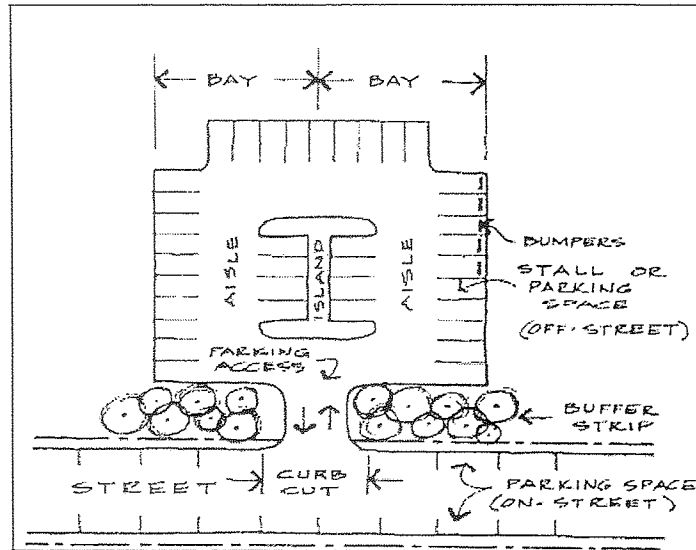 BAY BAY
AISLE
ISLAND
AISLE
BUMPERS
STALL OR
PARKING
SPACE
(OFF-STREET)
PARKING
ACCESS
BUFFER
STRIP
STREET
CURB
CUT
PARKING SPACE
(ON-STREET)